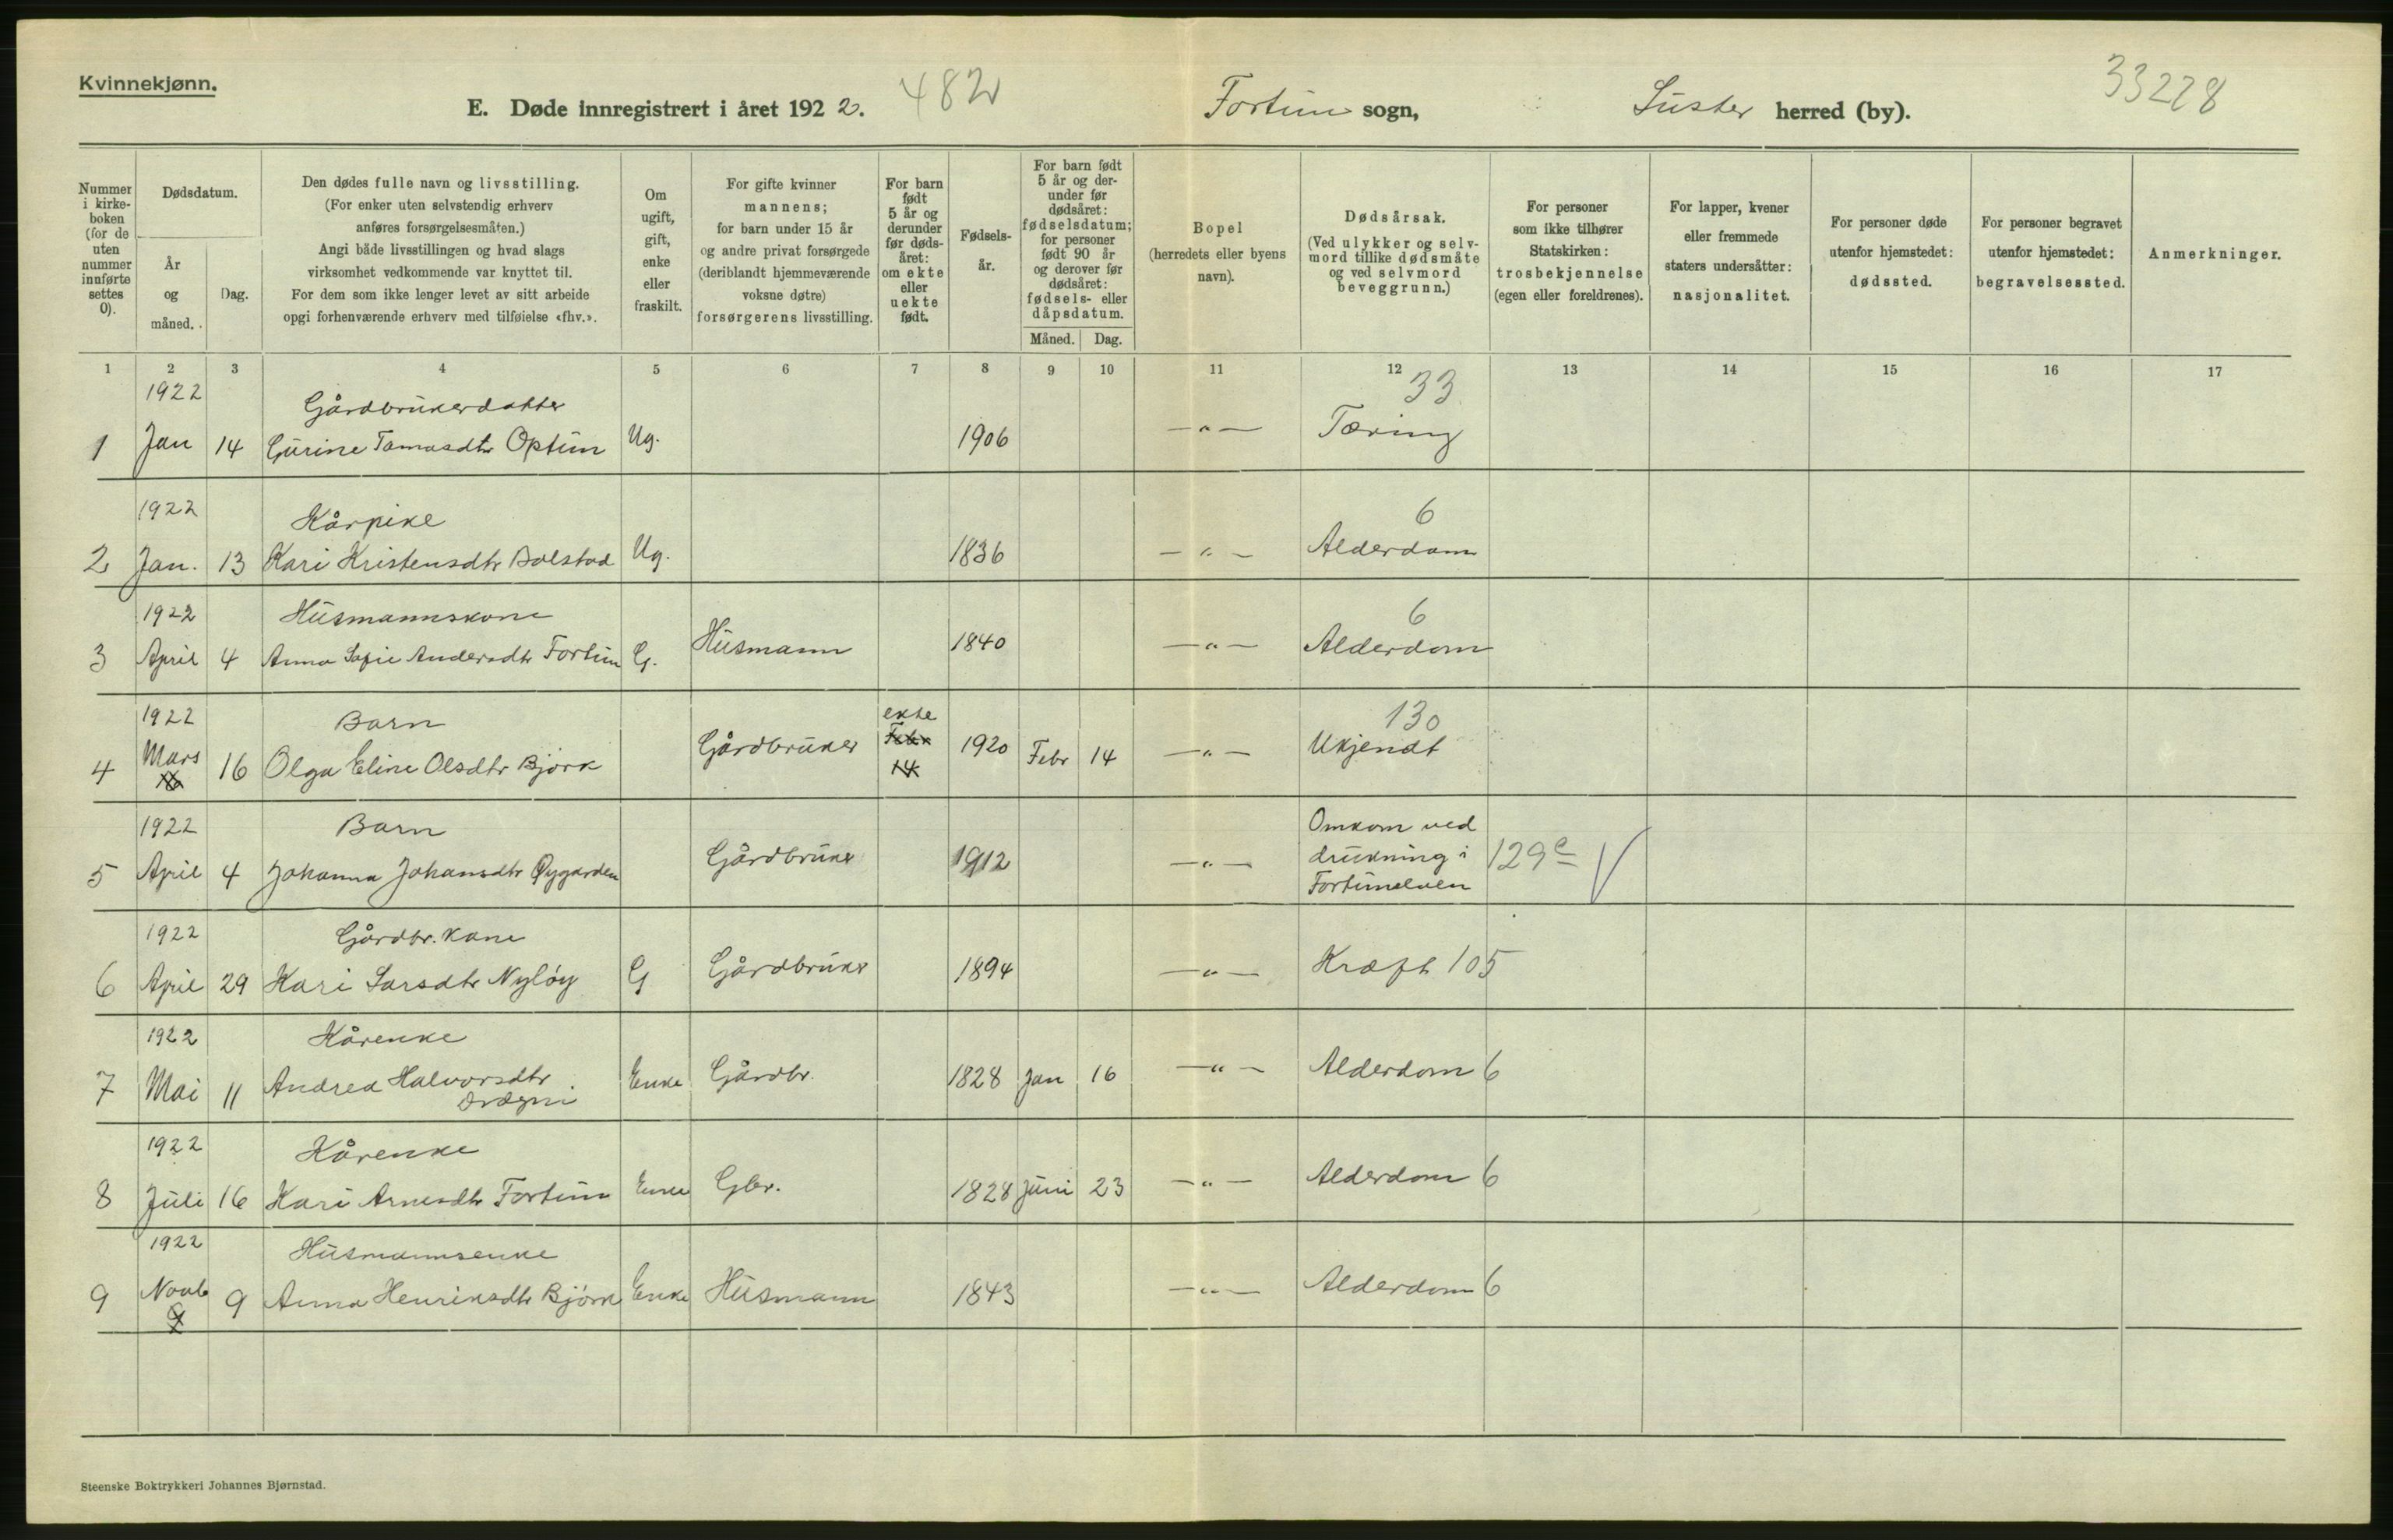 Kvinnekjønn.
E. Døde innregistrert i året 1922.
482
Fortun sogn,
Luster herred (by).
33228
Nummer i kirke-boken (for de uten nummer innførte settes 0).
Dødsdatum.
År og måned.
Dag.
Den dødes fulle navn og livsstilling.
(For enker uten selvstendig erhverv
anføres forsørgelsesmåten.)
Angi både livsstillingen og hvad slags
virksomhet vedkommende var knyttet til.
For dem som ikke lenger levet av sitt arbeide
opgi forhenværende erhverv med tilføielse «fhv.».
Om ugift, gift, enke eller fraskilt.
For gifte kvinner
mannens;
for barn under 15 år
og andre privat forsørgede
(deriblandt hjemmeværende
voksne døtre)
forsørgerens livsstilling.
For barn født 5 år og derunder før døds-året: om ekte eller uekte født.
Fødsels-år.
For barn født 5 år og der-under før dødsåret: fødselsdatum; for personer født 90 år og derover før dødsåret: fødsels- eller dåpsdatum.
Måned.
Dag.
Bopel
(herredets eller byens
navn).
Dødsårsak.
(Ved ulykker og selv-
mord tillike dødsmåte
og ved selvmord
beveggrunn.)
For personer
som ikke tilhører
Statskirken:
trosbekjennelse
(egen eller foreldrenes).
For lapper, kvener
eller fremmede
staters undersåtter:
nasjonalitet.
For personer døde
utenfor hjemstedet:
dødssted.
For personer begravet
utenfor hjemstedet:
begravelsessted.
Anmerkninger.
1 2 3 4 5 6 7 8 9 10 11 12 13 14 15 16 17
1922 Gårdbrukerdatter 33
1 Jan 14 Gurine Tomasdtr Optun Ug. 1906 —"— Tæring
1922 Kårpike 6
2 Jan. 13 Kari Kristensdtr Bolstad Ug. 1836 —"— Alderdom
1922 Husmannskone 6
3 April 4 Anna Sofie Andersdtr Fortun G. Husmann 1840 —"— Alderdom
1922 Barn ekte 130
4 Mars 16 Olga Eline Olsdtr Björk Gårdbruker Febr 14 1920 Febr 14 —"— Ukjendt
1922 Barn Omkom ved
5 April 4 Johanna Johansdtr Øygarden Gårdbruker 1912 —"— drukning i 129c V
Fortunelven
1922 Gårdbr. kone
6 April 29 Kari Larsdtr Nyløy G Gårdbruker 1894 —"— Kræft 105
1922 Kårenke
7 Mai 11 Andrea Halvorsdtr Enke Gårdbr. 1828 Jan 16 —"— Alderdom 6
1922 Kårenke
8 Juli 16 Kari Arnesdtr Fortun Enke Gbr. 1828 Juni 23 —"— Alderdom 6
1922 Husmannsenke
9 Novb 9 9 Anna Henriksdtr Björk Enke Husmann 1843 —"— Alderdom 6
Steenske Boktrykkeri Johannes Bjørnstad.